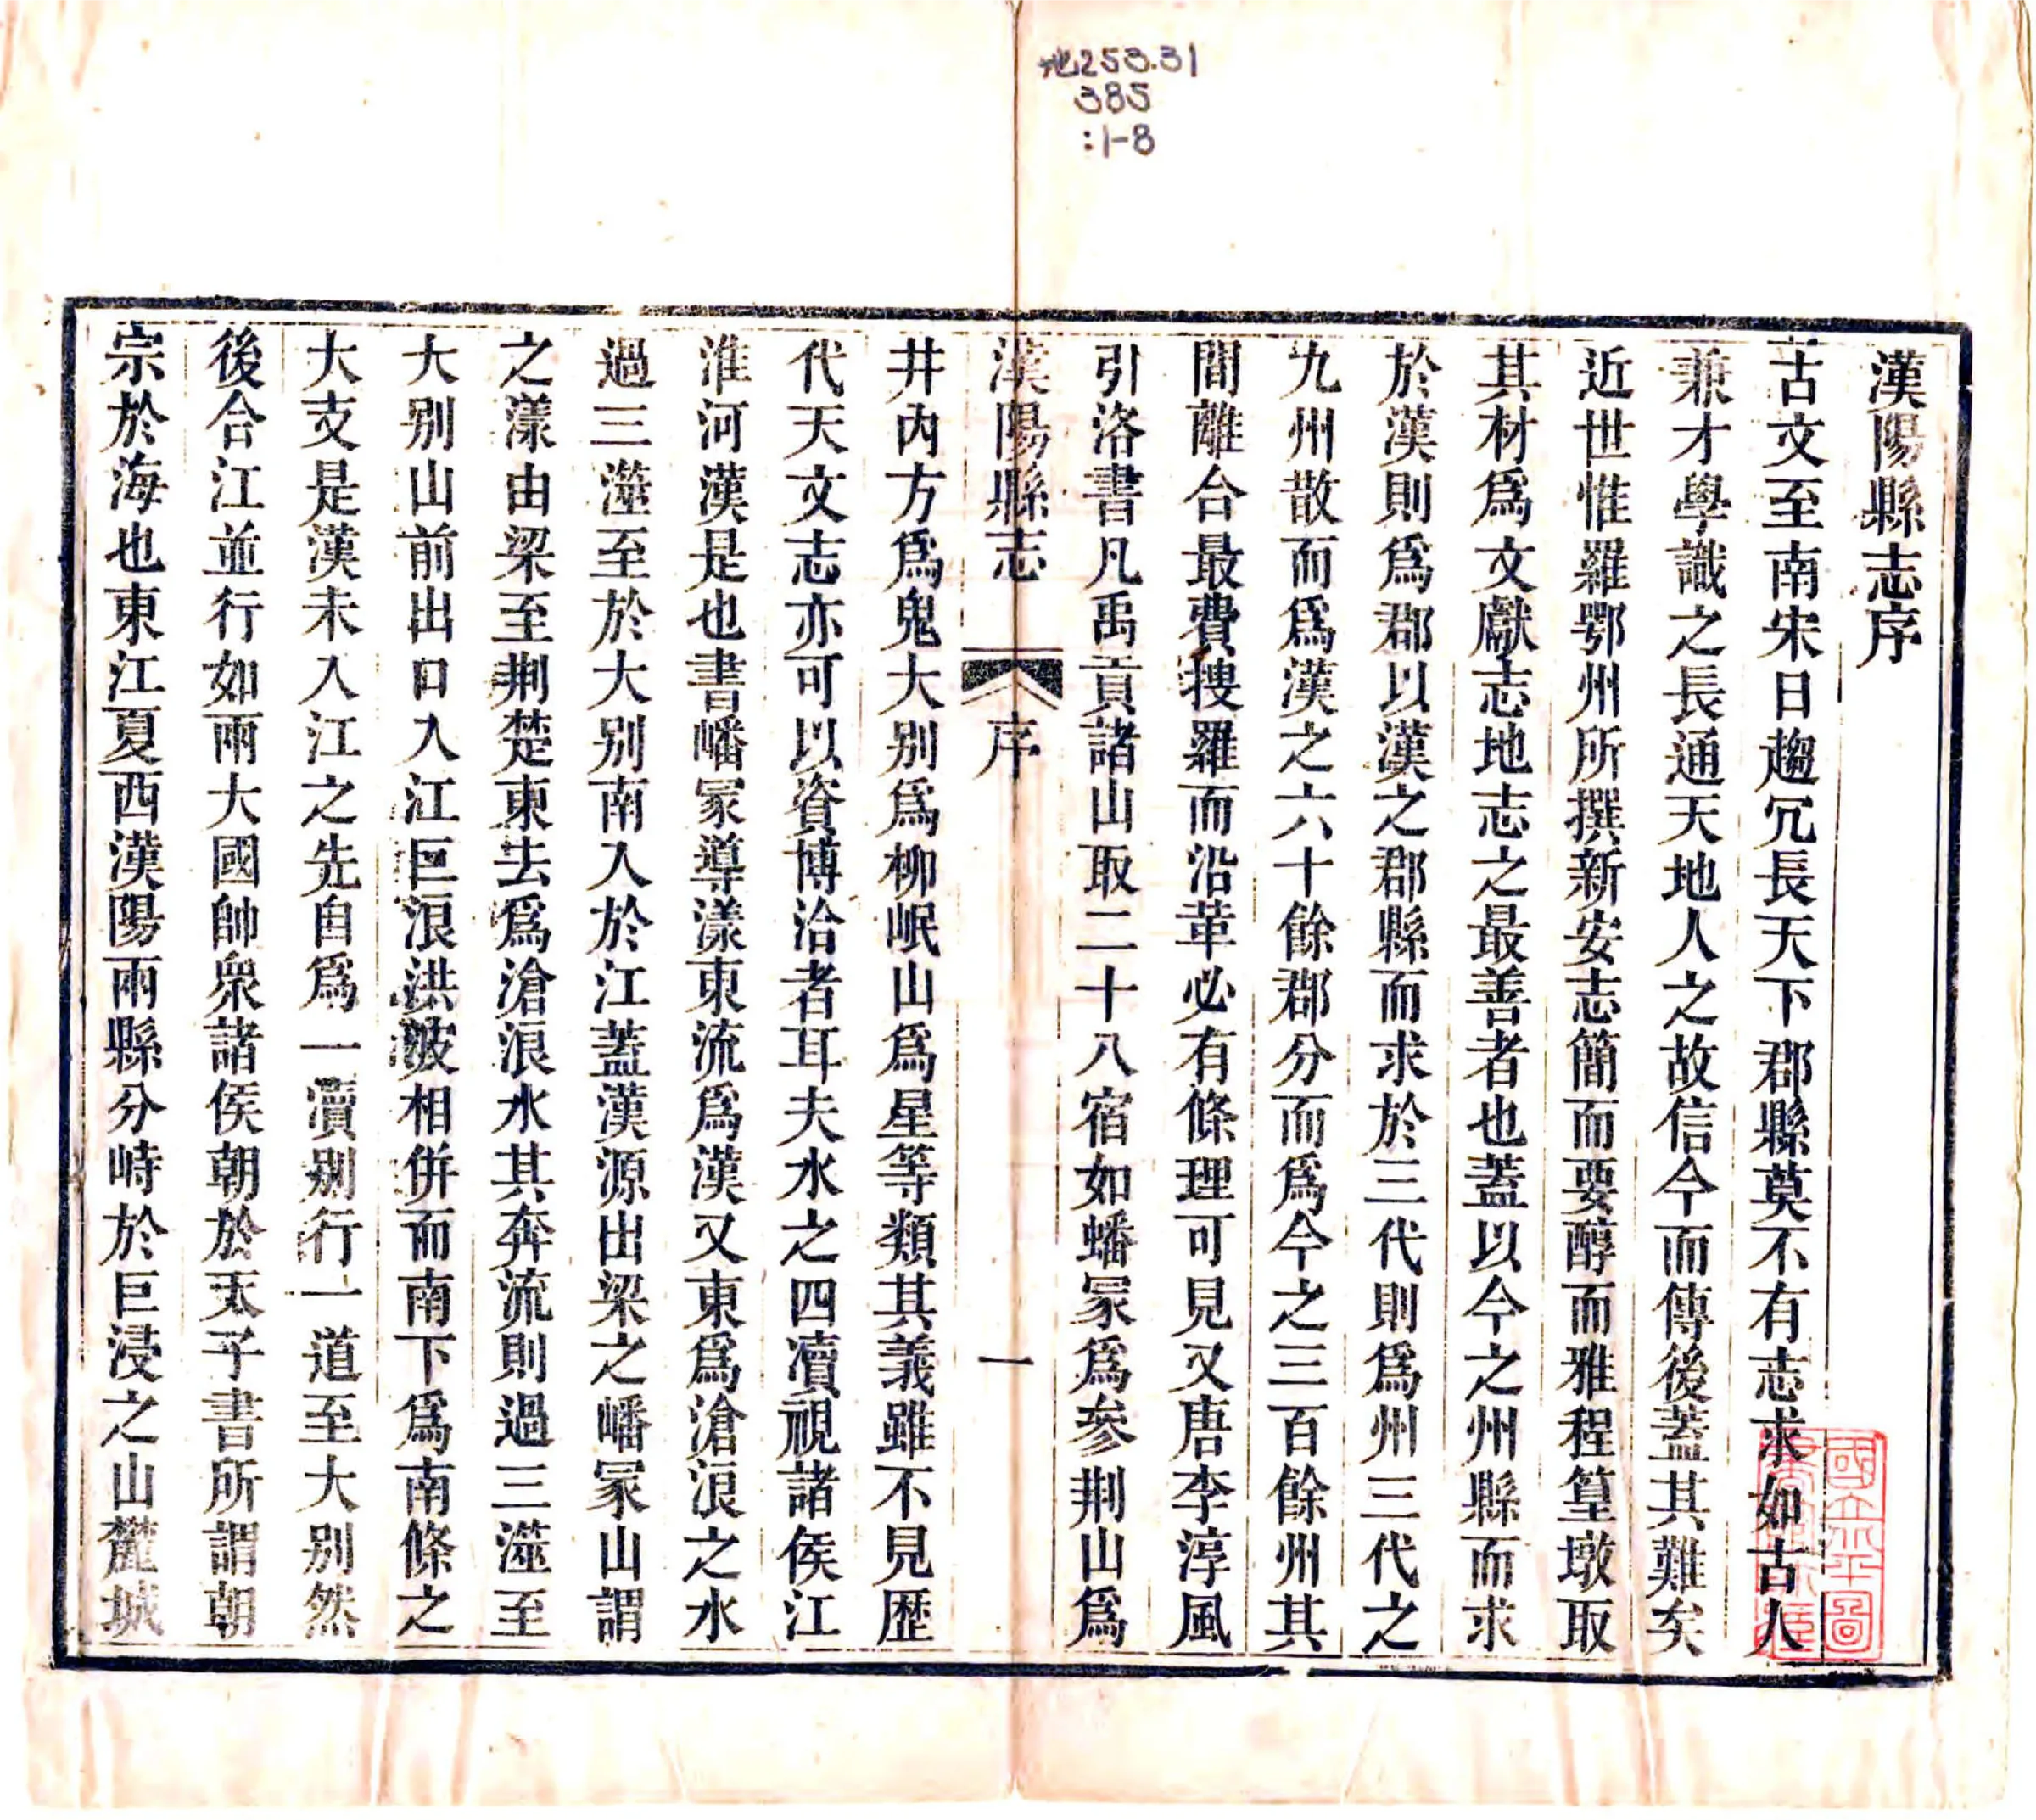 地253.31
385
:1-8
漢陽縣志序
古文至南宋日趨冗長天下郡縣莫不有志求如古人
兼才學識之長通天地人之故信今而傳後蓋其難矣
近世惟羅鄂州所撰新安志簡而要醇而雅程篁墩取
其材爲文獻志地志之最善者也蓋以今之州縣而求
於漢則爲郡以漢之郡縣而求於三代則爲州三代之
九州散而爲漢之六十餘郡分而爲今之三百餘州其
間離合最費搜羅而沿革必有條理可見又唐李淳風
引洛書凡禹貢諸山取二十八宿如蟠冢爲參荆山爲
漢陽縣志 序 一
井內方爲鬼大别爲柳岷山爲星等類其義雖不見歷
代天文志亦可以資博洽者耳夫水之四瀆視諸侯江
淮河漢是也書嶓冢導漾東流爲漢又東爲滄浪之水
過三澨至於大别南入於江蓋漢源出梁之嶓冢山謂
之漾由梁至荆楚東去爲滄浪水其奔流則過三澨至
大别山前出口入江巨浪洪波相併而南下爲南條之
大支是漢未入江之先自爲一瀆别行一道至大别然
後合江並行如兩大國帥衆諸侯朝於天子書所謂朝
宗於海也東江夏西漢陽兩縣分峙於巨浸之山麓城
國立北平圖